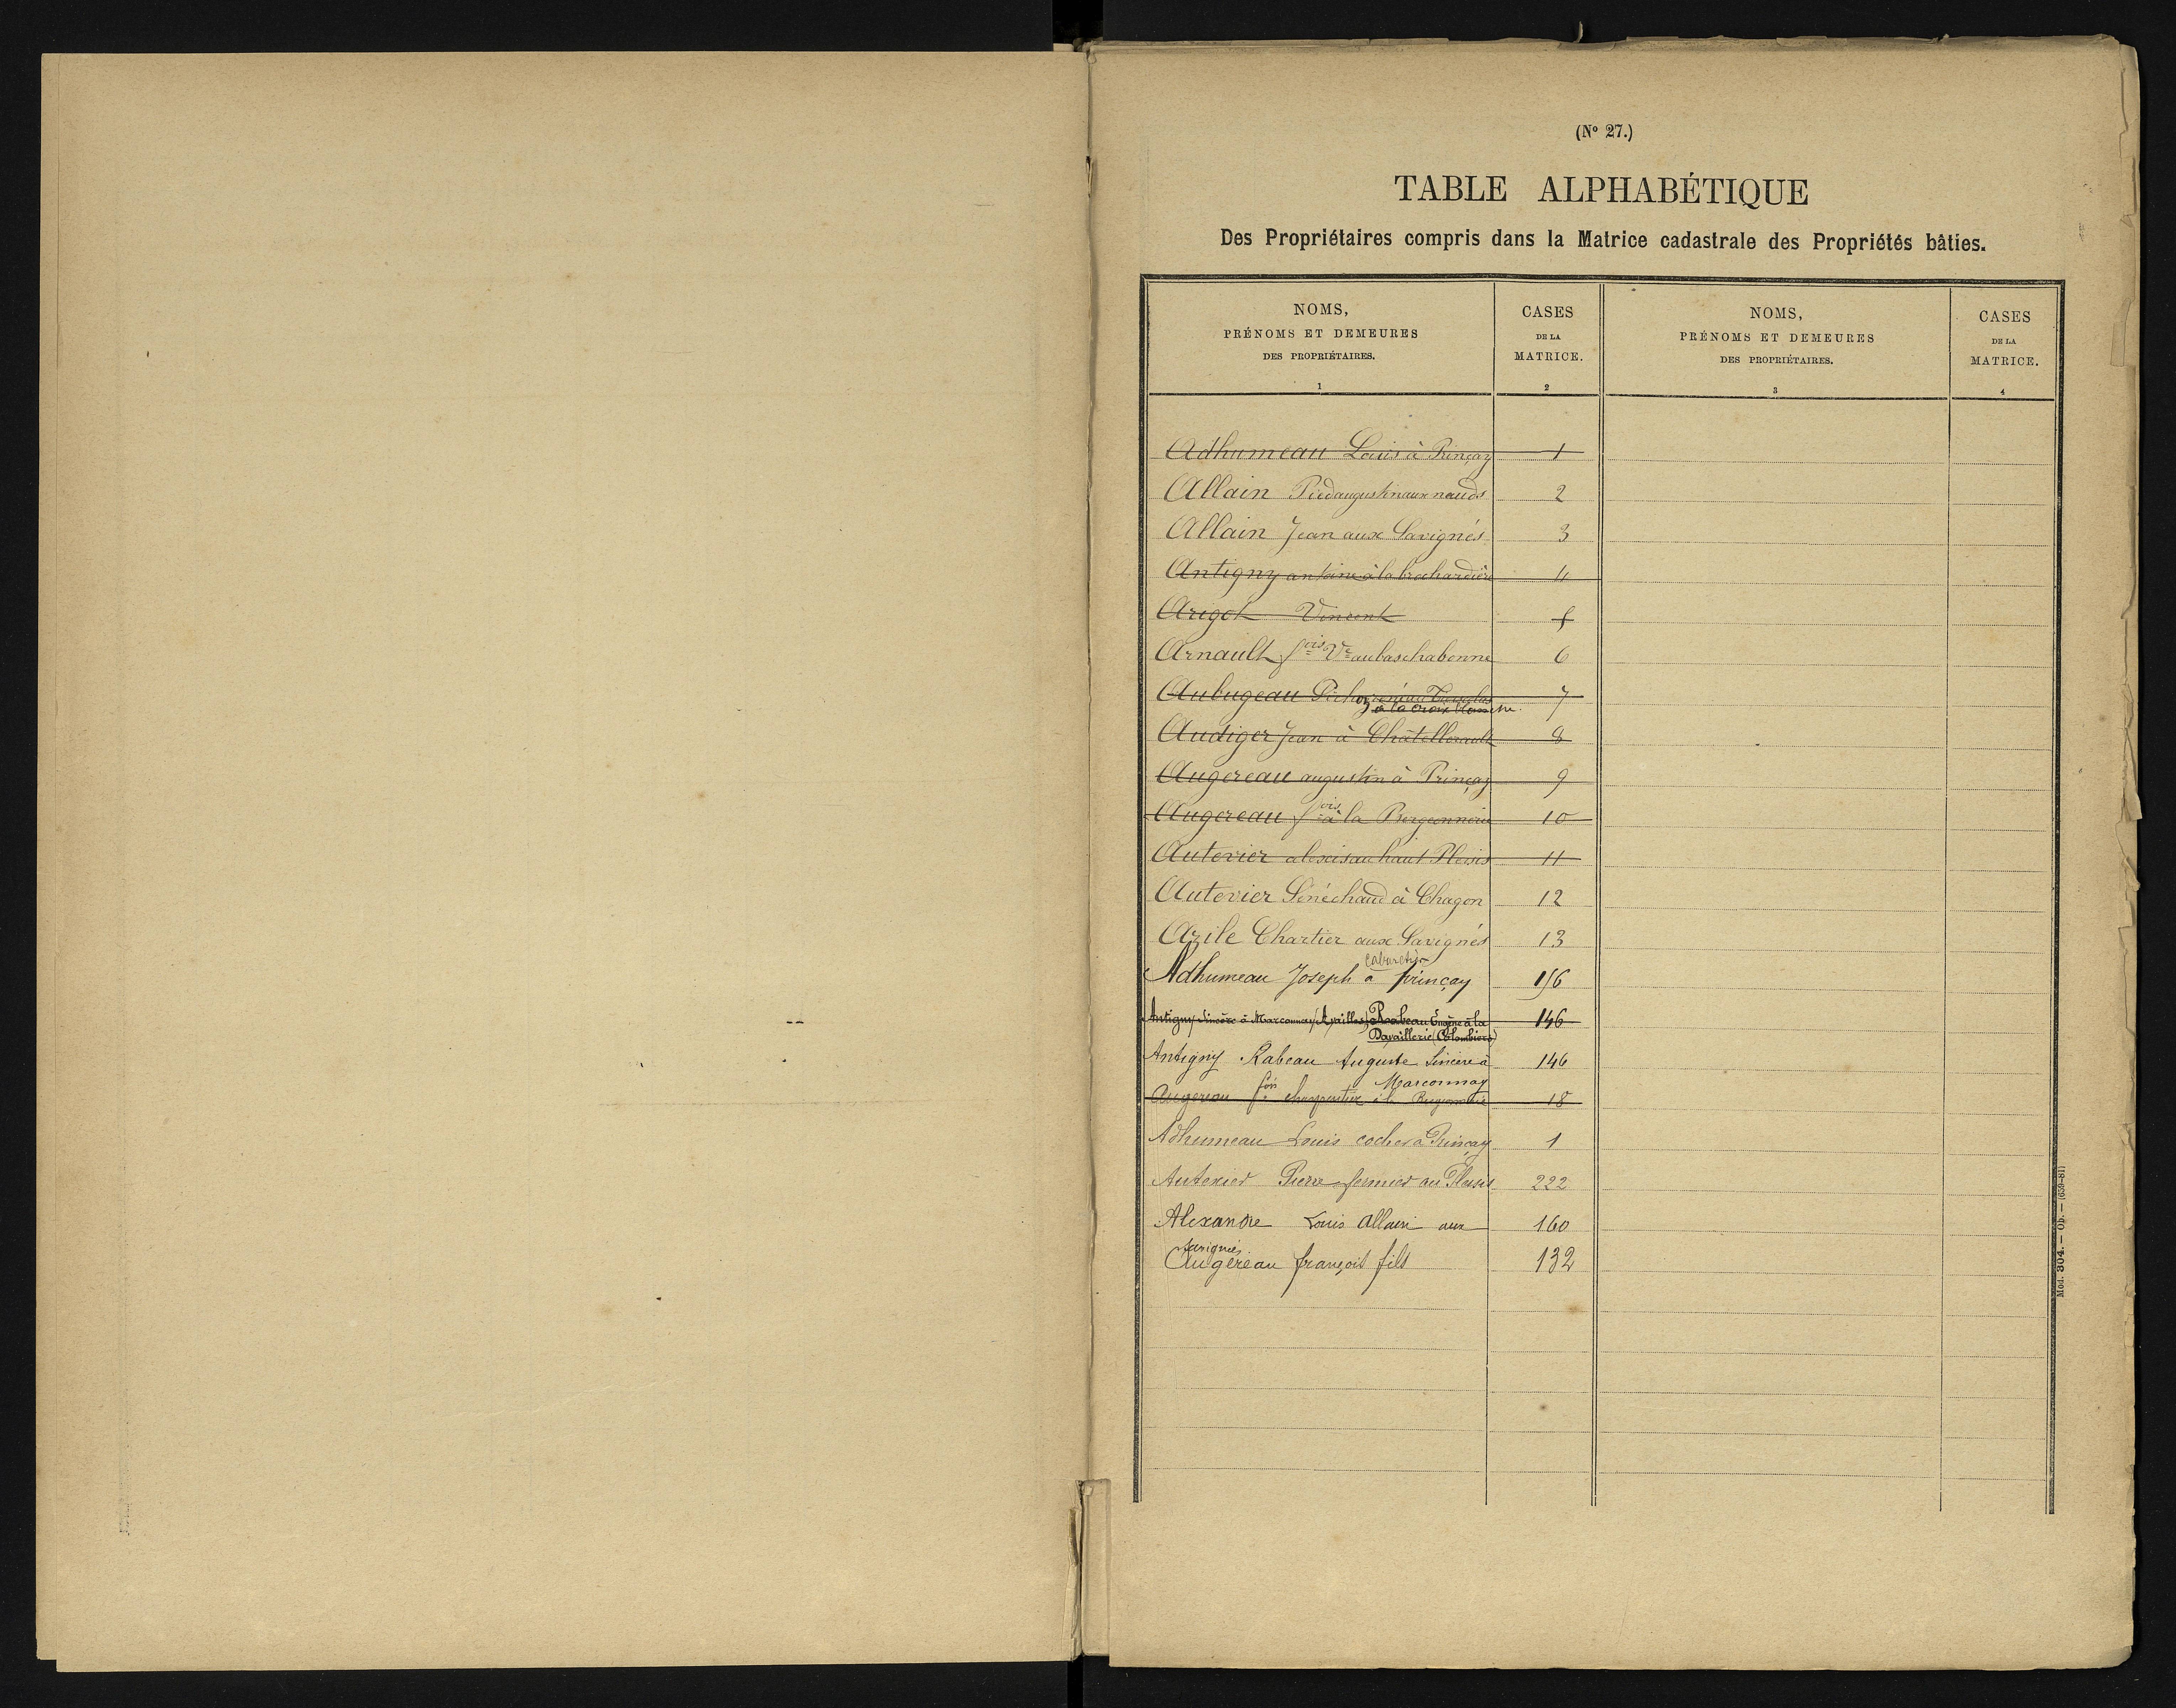 (Nº 27.)
TABLE ALPHABÉTIQUE
Des Propriétaires compris dans la Matrice cadastrale des Propriétés bâties.
NOMS, PRÉNOMS ET DEMEURES DES PROPRIÉTAIRES. 1
CASES DE LA MATRICE. 2
NOMS, PRÉNOMS ET DEMEURES DES PROPRIÉTAIRES. 3
CASES DE LA MATRICE. 4
Adhumeau Louis à Prinçay 1
Allain Piedaugustin aux nauds 2
Allain Jean aux Savignés 3
Antigny antoine à la brochardière 4
Arigot Vincent
Arnault fois Ve au bas chabonne 6
Aubugeau Pichon 7
à la croix blanche.
Audiger Jean à Châtellerault 8
Augereau augustin à Prinçay 9
Augereau fois à la Bergeonnerie 10
Autexier alexis au haut Plessis 11
Autexier Sénéchaud à Chagon 12
Azile Chartier aux Savignés 13
cabaretier
Adhumeau Joseph à prinçay 156
Antigny Sincère à Marconnay (Availles), Rabeau Eugène à la 146
Davaillerie (Colombiers)
Antigny Rabeau Auguste Sincère à 146
Marconnay
Augereau fois charpentier à la Bergeonnerie 18
Adhumeau Louis cocher à Prinçay 1
Autexier Pierre fermier au Plessis 222
Alexandre Louis Allain aux 160
Savignés
Augereau françois fils 132
Mod. 304. — Ob. — (659-81)